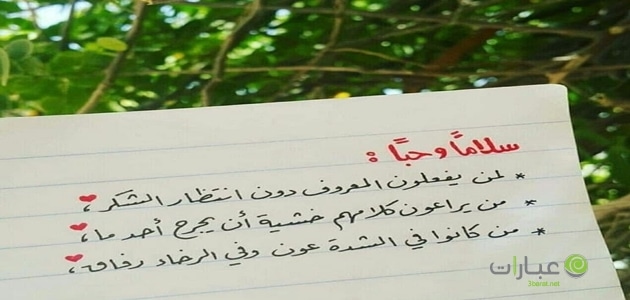 سلامًا وحبًا :
* لمن يفعلون المعروف دون انتظار الشكر،
* من يراعون كلامهم خشية أن يجرح أحد ما،
* من كانوا في الشدة عون وفي الرخاء رفاق،
عبارات
3barat.net